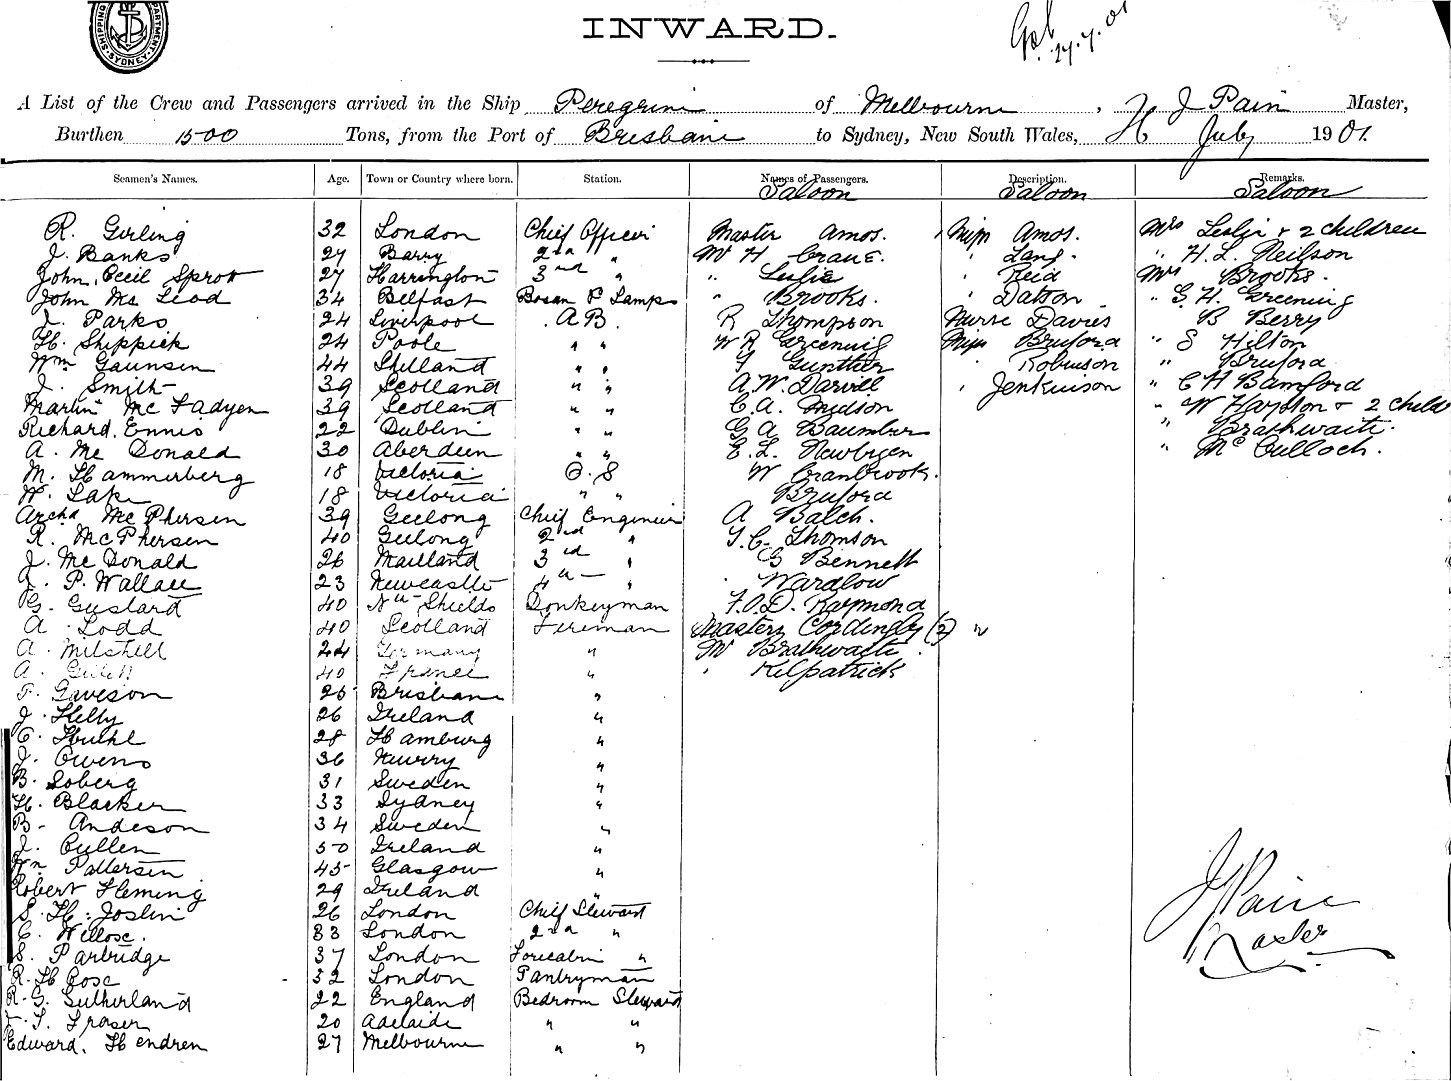 SHIPPING DEPARTMENT. SYDNEY
INWARD.
27.7.01
A List of the Crew and Passengers arrived in the Ship Peregrine of Melbourne, J Pain Master,
Burthen 1500 Tons, from the Port of Brisbane to Sydney, New South Wales, July 1901.
Seamen's Names. Age. Town or Country where born. Station. Names of Passengers. Description. Remarks.
Saloon Saloon Saloon
R. Girling 32 London Chief Officer Master Amos. Miss Amos. Mrs Leslie + 2 children
J. Banks 27 Barry 2nd " Mr H Crane. " Lang. " H.L. Neilson
John Cecil Sprott 27 Harrington 3rd " " Leslie " Reid Mrs Brooks.
John Mc Leod 34 Belfast Bosan & Lamps " Brooks. " Datson " G. H. Greening
J. Parks 24 Liverpool A B. R Thompson Nurse Davies " B Berry
H. Shippick 24 Poole " " W R Greening Miss Bruford " S Hilton
Wm Gaunson 44 Shetland " " Gunther " Robinson " Bruford
J. Smith 39 Scotland " " A. W. Darvill " Jenkinson " C H Bamford
Martin Mc Fadyen 39 Scotland " " C. A. Midson " W Haydon + 2 child
Richard. Ennis 22 Dublin " " G A Baumber " Brathwaite.
A. Mc Donald 30 Aberdeen " " E. L. Newbigen " Mc Culloch.
M. Hammerberg 18 Victoria O. S W Cranbrook.
W. Lake 18 Victoria " " Bruford
Archd Mc Phersen 39 Geelong Chief Engineer A Balch.
R. McPhersen 40 Geelong 2nd " T. C. Thomson
J. Mc Donald 26 Maitland 3rd " G Bennett
J. P. Wallace 23 Newcastle 4th " " Wardlow
G. Gustard 40 Nth Shields Donkeyman F.O.D. Raymond
A. Todd 40 Scotland Fireman Masters Cordingly (2) "
A. Mitchell 24 Germany " Mr Brathwaite.
A. 40 France " " Kilpatrick
F. Gaveson 25 Brisbane "
J. Kelly 26 Ireland "
C. 28 Hamburg "
J. Owens 36 Newry "
B. Soberg 31 Sweden "
H. Blacker 33 Sydney "
B. Andeson 34 Sweden "
J. Cullen 50 Ireland "
Wm Pattersen 45 Glasgow "
Robert Fleming 29 Ireland "
S. H. Joslin 26 London Chief Steward
C. Willose. 33 London 2nd "
S. Partridge 37 London Forecabin "
R. H Cose 32 London Pantryman
R. G. Sutherland 22 England Bedroom Steward
T. Fraser 20 Adelaide " "
Edward. Hendren 27 Melbourne " "
J Pain
Master